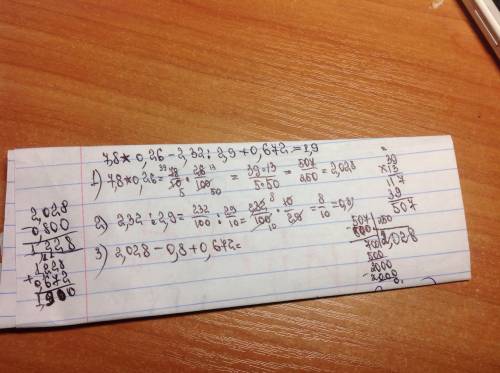 7,8*0,26-2,32:2,9+0,672=1,9
1) 7,8*0,26= 78/10 * 26/100 = 39*13/5*50 = 507/250 = 2,028
2) 2,32:2,9= 232/100 : 29/10 = 232/100 * 10/29 = 8/10 = 0,8
3) 2,028-0,8+0,672=
2,028
-0,800
1,228
1,228
+0,672
1,900
39
x13
117
39
507
507 250
500 2,028
700
500
2000
-2000